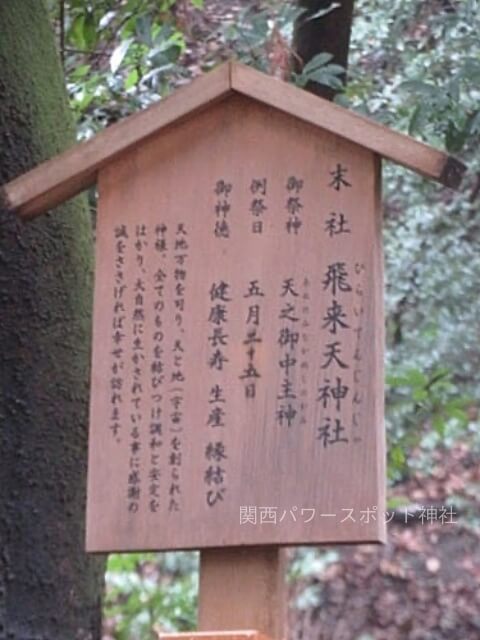 末社 飛来天神社
ひらいてんじんしゃ
御祭神 天之御中主神
あめのみなかぬしのかみ
例祭日 五月二十五日
御神徳 健康長寿 生産 縁結び
天地万物を司り、天と地（宇宙）を創られた
神様、全てのものを結びつけ調和と安定を
はかり、大自然に生かされている事に感謝の
誠をささげれば幸せが訪れます。
関西パワースポット神社